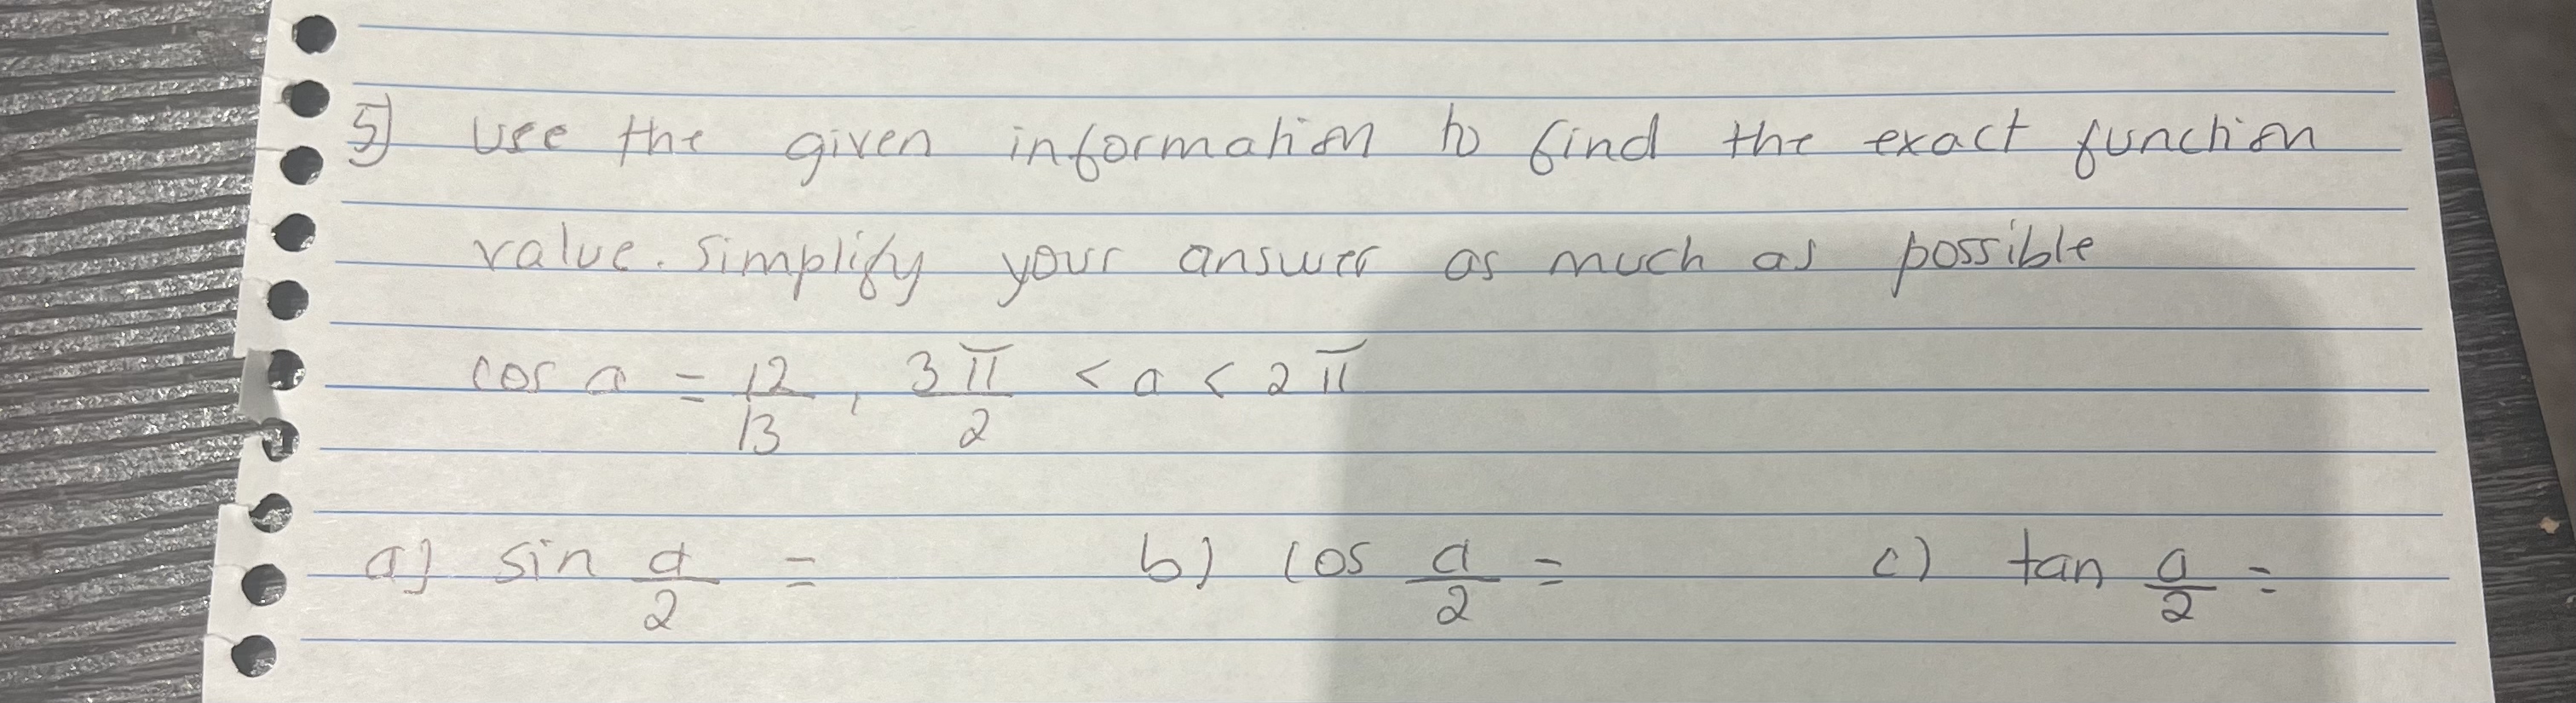 5) Use the given information to find the exact function
value. Simplify your answer as much as possible
cos a = 12/13, 3π/2 < a < 2π
a) sin a/2 = b) cos a/2 = c) tan a/2 =